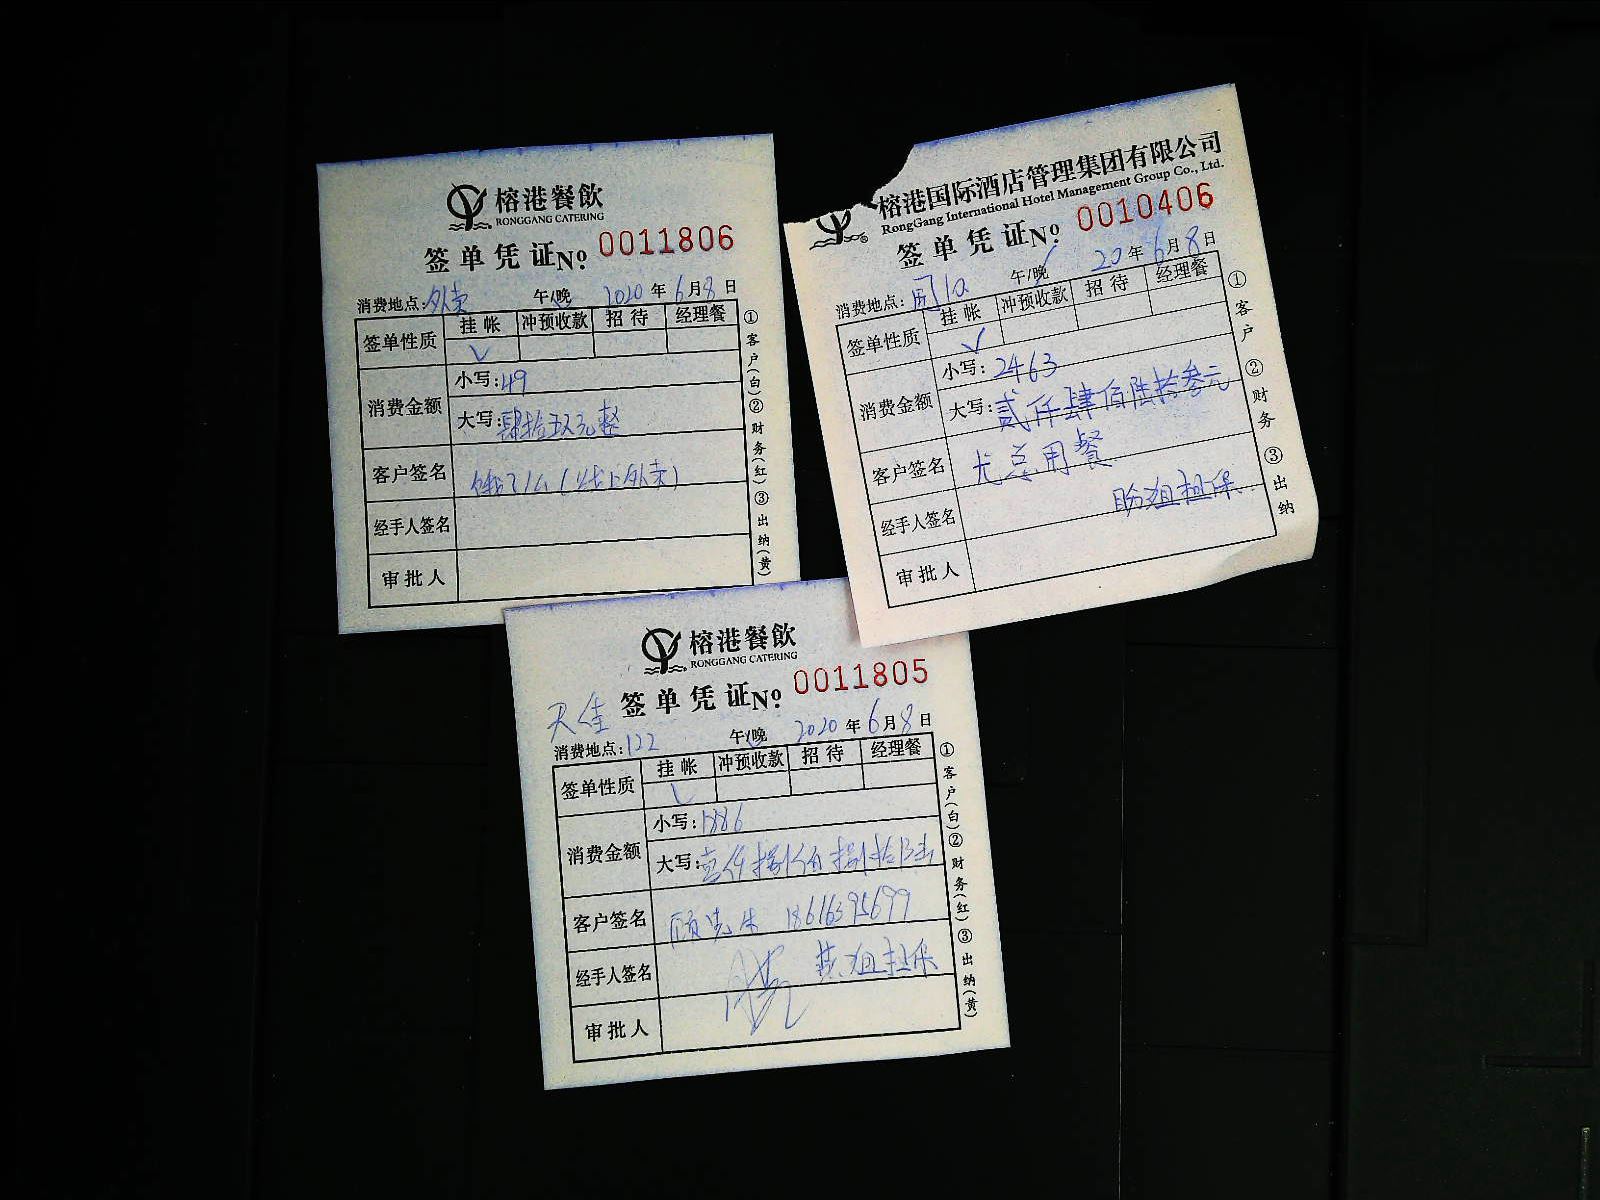 榕港餐飲
RONGGANG CATERING
签单凭证No. 0011806
消费地点:外卖 午/晚 2020年6月8日
签单性质 挂帐 冲预收款 招待 经理餐
✓
消费金额 小写:49
大写:肆拾玖元整
客户签名 饿了么(线上外卖)
经手人签名
审批人
①客户(白)②财务(红)③出纳(黄)
榕港国际酒店管理集团有限公司
RongGang International Hotel Management Group Co., Ltd.
签单凭证No. 0010406
消费地点: 午/晚 20年6月8日
签单性质 挂帐 冲预收款 招待 经理餐
✓
消费金额 小写:2463
大写:贰仟肆佰陆拾叁元
客户签名 尤总用餐
盼姐担保
经手人签名
审批人
①客户 ②财务 ③出纳
榕港餐飲
RONGGANG CATERING
签单凭证No. 0011805
天佳
消费地点:122 午/晚 2020年6月8日
签单性质 挂帐 冲预收款 招待 经理餐
✓
消费金额 小写:1886
大写:壹仟捌佰捌拾陆
客户签名 顾 18616395699
经手人签名 姐担保
审批人
①客户(白)②财务(红)③出纳(黄)